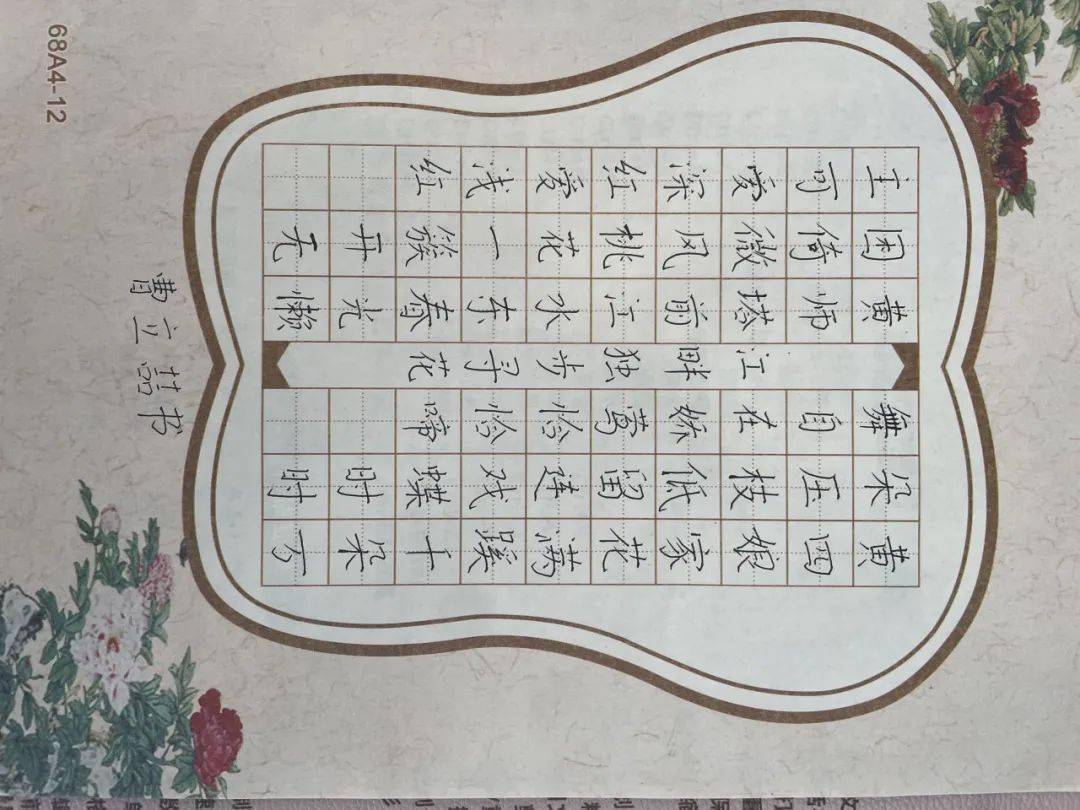 黄四娘家花满蹊千朵万
朵压枝低留连戏蝶时时
舞自在娇莺恰恰啼
江畔独步寻花
黄师塔前江水东春光懒
困倚微风桃花一簇开无
主可爱深红爱浅红
曹立书
68A4-12